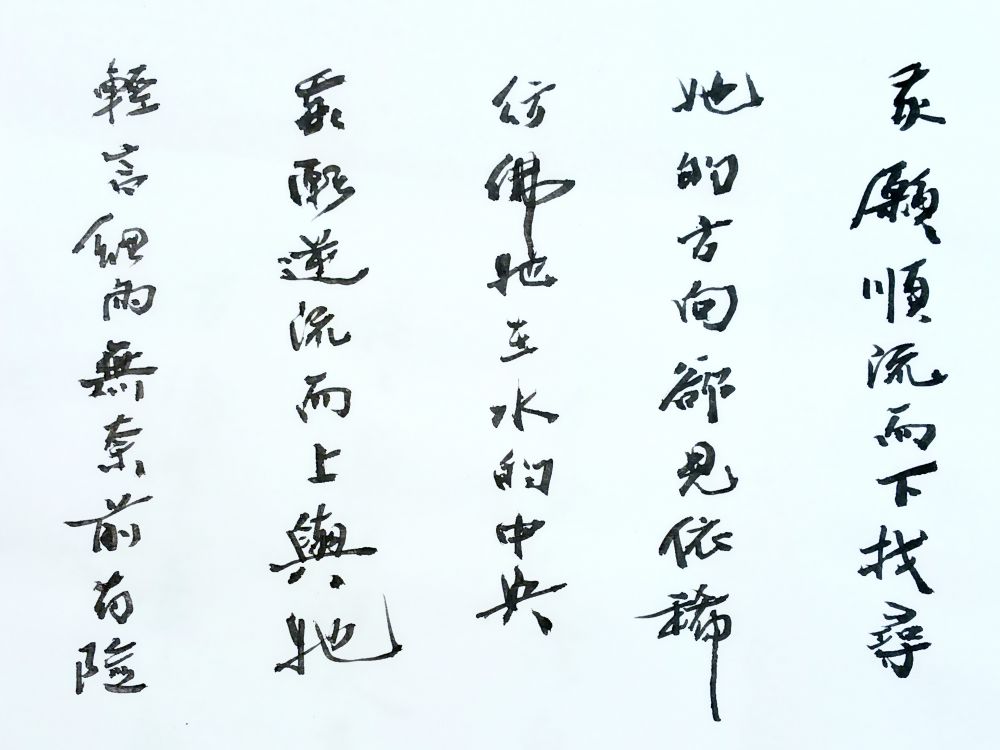 我願順流而下找尋
她的方向卻見依稀
彷彿她在水的中央
我願逆流而上與她
輕言細雨無奈前有險